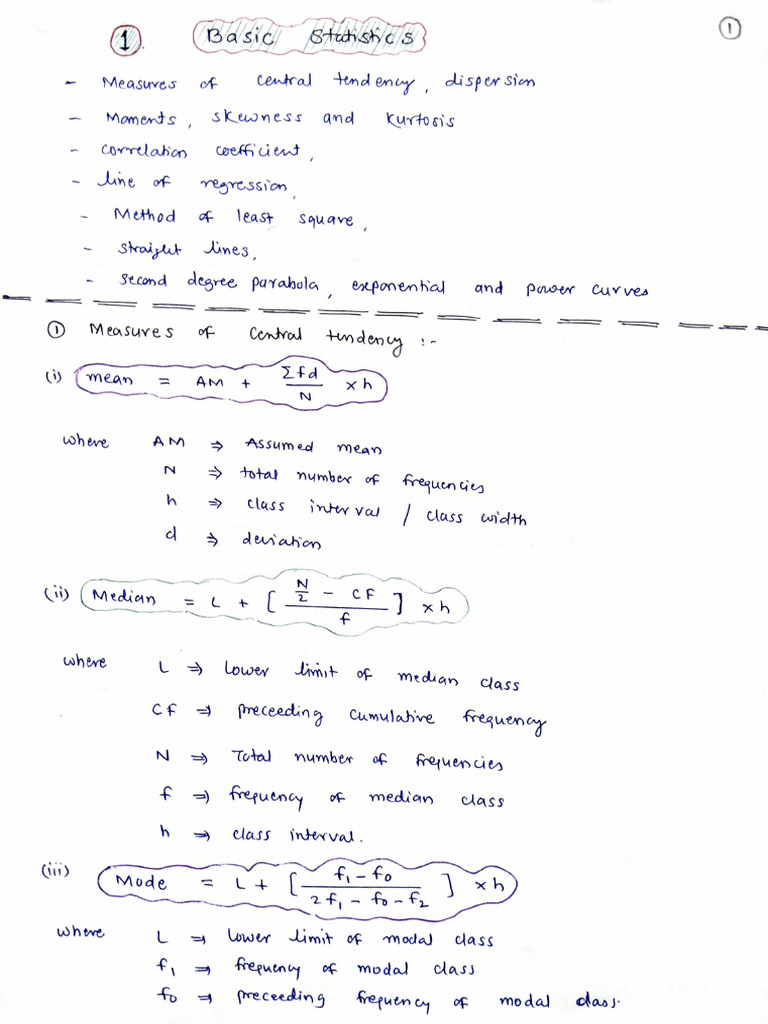 1. Basic Statistics
1
- Measures of central tendency, dispersion
- Moments, skewness and kurtosis
- correlation coefficient,
- line of regression,
- Method of least square,
- straight lines,
- second degree parabola, exponential and power curves
① Measures of central tendency :-
(i) mean = AM + Σfd/N × h
where AM ⇒ Assumed mean
N ⇒ total number of frequencies
h ⇒ class interval / class width
d ⇒ deviation
(ii) Median = L + [ (N/2 - CF)/f ] × h
where L ⇒ Lower limit of median class
CF ⇒ preceeding cumulative frequency
N ⇒ Total number of frequencies
f ⇒ frequency of median class
h ⇒ class interval.
(iii) Mode = L + [ (f₁ - f₀)/(2f₁ - f₀ - f₂) ] × h
where L ⇒ lower limit of modal class
f₁ ⇒ frequency of modal class
f₀ ⇒ preceeding frequency of modal class.